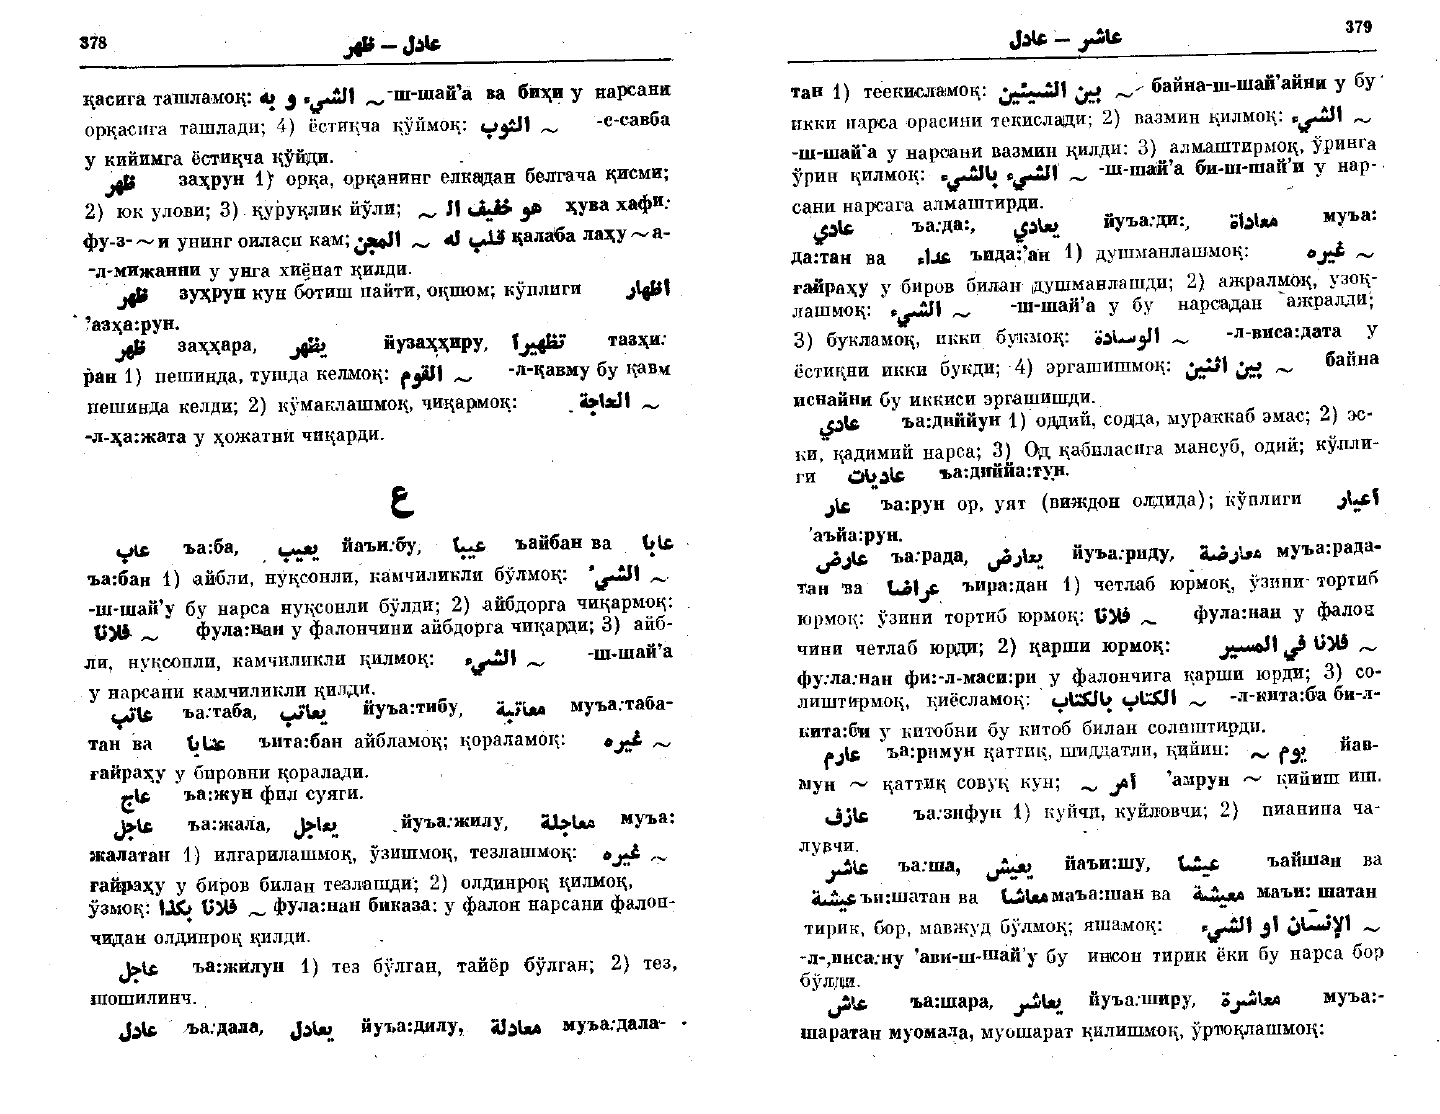 378
عادل — ظهر
қасига ташламоқ: الشيء و به ~ -ш-шай’а ва биҳи у нарсани
орқасига ташлади; 4) ёстиқча қўймоқ: الثوب ~ -с-савба
у кийимга ёстиқча қўйди.
ظهر заҳрун 1) орқа, орқанинг елкадан белгача қисми;
2) юк улови; 3) қуруқлик йўли; هو خفيف الـ ~ ҳува хафи:
фу-з-~и унинг оиласи кам; قلب له ~ المجن қалаба лаҳу ~ а-
-л-мижанни у унга хиёнат қилди.
ظهر зуҳрун кун ботиш пайти, оқшом; кўплиги اظهار
’азҳа:рун.
ظهر заҳҳара, يظهر йузаҳҳиру, تظهيرا тазҳи:
ран 1) пешинда, тушда келмоқ: القوم ~ -л-қавму бу қавм
пешинда келди; 2) кўмаклашмоқ, чиқармоқ: الحاجة ~
-л-ҳа:жата у ҳожатни чиқарди.
ع
عاب ъа:ба, يعيب йаъи:бу, عيبا ъайбан ва عابا
ъа:бан 1) айбли, нуқсонли, камчиликли бўлмоқ: الشيء ~
-ш-шай’у бу нарса нуқсонли бўлди; 2) айбдорга чиқармоқ:
فلانا ~ фула:нан у фалончини айбдорга чиқарди; 3) айб-
ли, нуқсонли, камчиликли қилмоқ: الشيء ~ -ш-шай’а
у нарсани камчиликли қилди.
عاتب ъа:таба, يعاتب йуъа:тибу, معاتبة муъа:таба-
тан ва عتابا ъита:бан айбламоқ; қораламоқ: غيره ~
ғайраҳу у бировни қоралади.
عاج ъа:жун фил суяги.
عاجل ъа:жала, يعاجل йуъа:жилу, معاجلة муъа:
жалатан 1) илгарилашмоқ, ўзишмоқ, тезлашмоқ: غيره ~
ғайраҳу у биров билан тезлашди; 2) олдинроқ қилмоқ,
ўзмоқ: فلانا بكذا ~ фула:нан биказа: у фалон нарсани фалон-
чидан олдинроқ қилди.
عاجل ъа:жилун 1) тез бўлган, тайёр бўлган; 2) тез,
шошилинч.
عادل ъа:дала, يعادل йуъа:дилу, معادلة муъа:дала-
عاشر — عادل
379
тан 1) теекисламоқ: بين الشيئين ~ байна-ш-шай’айни у бу
икки нарса орасини текислади; 2) вазмин қилмоқ: الشيء ~
-ш-шай’а у нарсани вазмин қилди: 3) алмаштирмоқ, ўринга
ўрин қилмоқ: الشيء بالشيء ~ -ш-шай’а би-ш-шай’и у нар-
сани нарсага алмаштирди.
عادي ъа:да:, يعادي йуъа:ди:, معاداة муъа:
да:тан ва عداء ъида:’ан 1) душманлашмоқ: غيره ~
ғайраҳу у биров билан душманлашди; 2) ажралмоқ, узоқ-
лашмоқ: الشيء ~ -ш-шай’а у бу нарсадан ажралди;
3) букламоқ, икки букмоқ: الوسادة ~ -л-виса:дата у
ёстиқни икки букди; 4) эргашишмоқ: بين اثنين ~ байна
иснайни бу иккиси эргашишди.
عادي ъа:диййун 1) оддий, содда, мураккаб эмас; 2) эс-
ки, қадимий нарса; 3) Од қабиласига мансуб, одий; кўпли-
ги عاديات ъа:диййа:тун.
عار ъа:рун ор, уят (виждон олдида); кўплиги أعيار
’аъйа:рун.
عارض ъа:рада, يعارض йуъа:риду, معارضة муъа:рада-
тан ва عراضا ъира:дан 1) четлаб юрмоқ, ўзини тортиб
юрмоқ: ўзини тортиб юрмоқ: فلانا ~ фула:нан у фалон
чини четлаб юрди; 2) қарши юрмоқ: فلانا في المسير ~
фула:нан фи:-л-маси:ри у фалончига қарши юрди; 3) со-
лиштирмоқ, қиёсламоқ: الكتاب بالكتاب ~ -л-кита:ба би-л-
кита:би у китобни бу китоб билан солиштирди.
عارم ъа:римун қаттиқ, шиддатли, қийин: يوم ~ йав-
мун ~ қаттиқ совуқ кун; أمر ~ ’амрун ~ қийиш иш.
عازف ъа:зифун 1) куйчи, куйловчи; 2) пианина ча-
лувчи.
عاشر ъа:ша, يعيش йаъи:шу, عيشا ъайшан ва
عيشة ъи:шатан ва معاشا маъа:шан ва معيشة маъи: шатан
тирик, бор, мавжуд бўлмоқ; яшамоқ: الإنسان او الشيء ~
-л-,инса:ну ’ави-ш-шай’у бу инсон тирик ёки бу нарса бор
бўлди.
عاشر ъа:шара, يعاشر йуъа:ширу, معاشرة муъа:-
шаратан муомала, муошарат қилишмоқ, ўртоқлашмоқ: